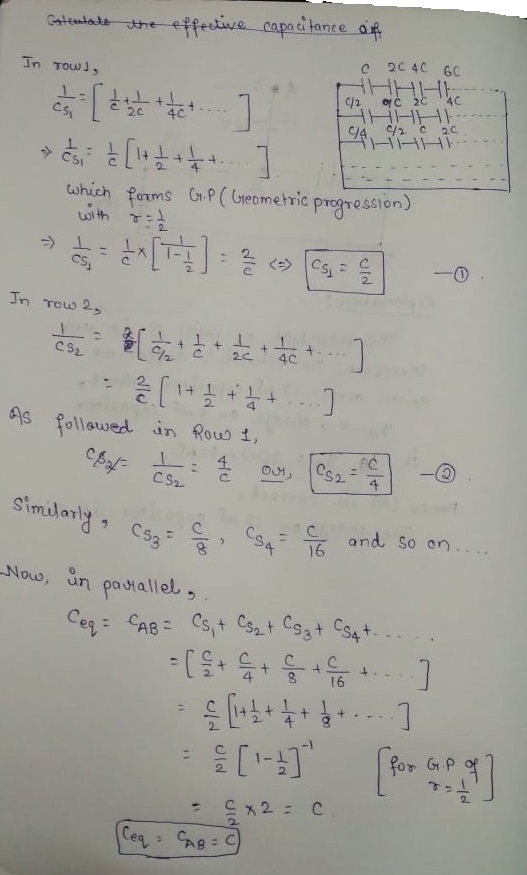 Calculate the effective capacitance of
In row 1,
C 2C 4C 6C
C/2 C 2C 4C
C/4 C/2 C 2C
1/CS₁ = [1/C + 1/2C + 1/4C + ....]
⇒ 1/CS₁ = 1/C [1 + 1/2 + 1/4 + ....]
which forms G.P (Geometric progression)
with r = 1/2
⇒ 1/CS₁ = 1/C × [1/(1 - 1/2)] = 2/C <=> CS₁ = C/2 —①.
In row 2,
1/CS₂ = [1/C/2 + 1/C + 1/2C + 1/4C + ....]
= 2/C [1 + 1/2 + 1/4 + ....]
As followed in Row 1,
CS₂ = 1/CS₂ = 4/C or, CS₂ = C/4 —②.
Similarly, CS₃ = C/8, CS₄ = C/16 and so on ....
Now, in parallel,
Ceq = CAB = CS₁ + CS₂ + CS₃ + CS₄ + .....
= [C/2 + C/4 + C/8 + C/16 + ....]
= C/2 [1 + 1/2 + 1/4 + 1/8 + ....]
= C/2 [1 - 1/2]⁻¹ [for G.P of r = 1/2]
= C/2 × 2 = C.
Ceq = CAB = C